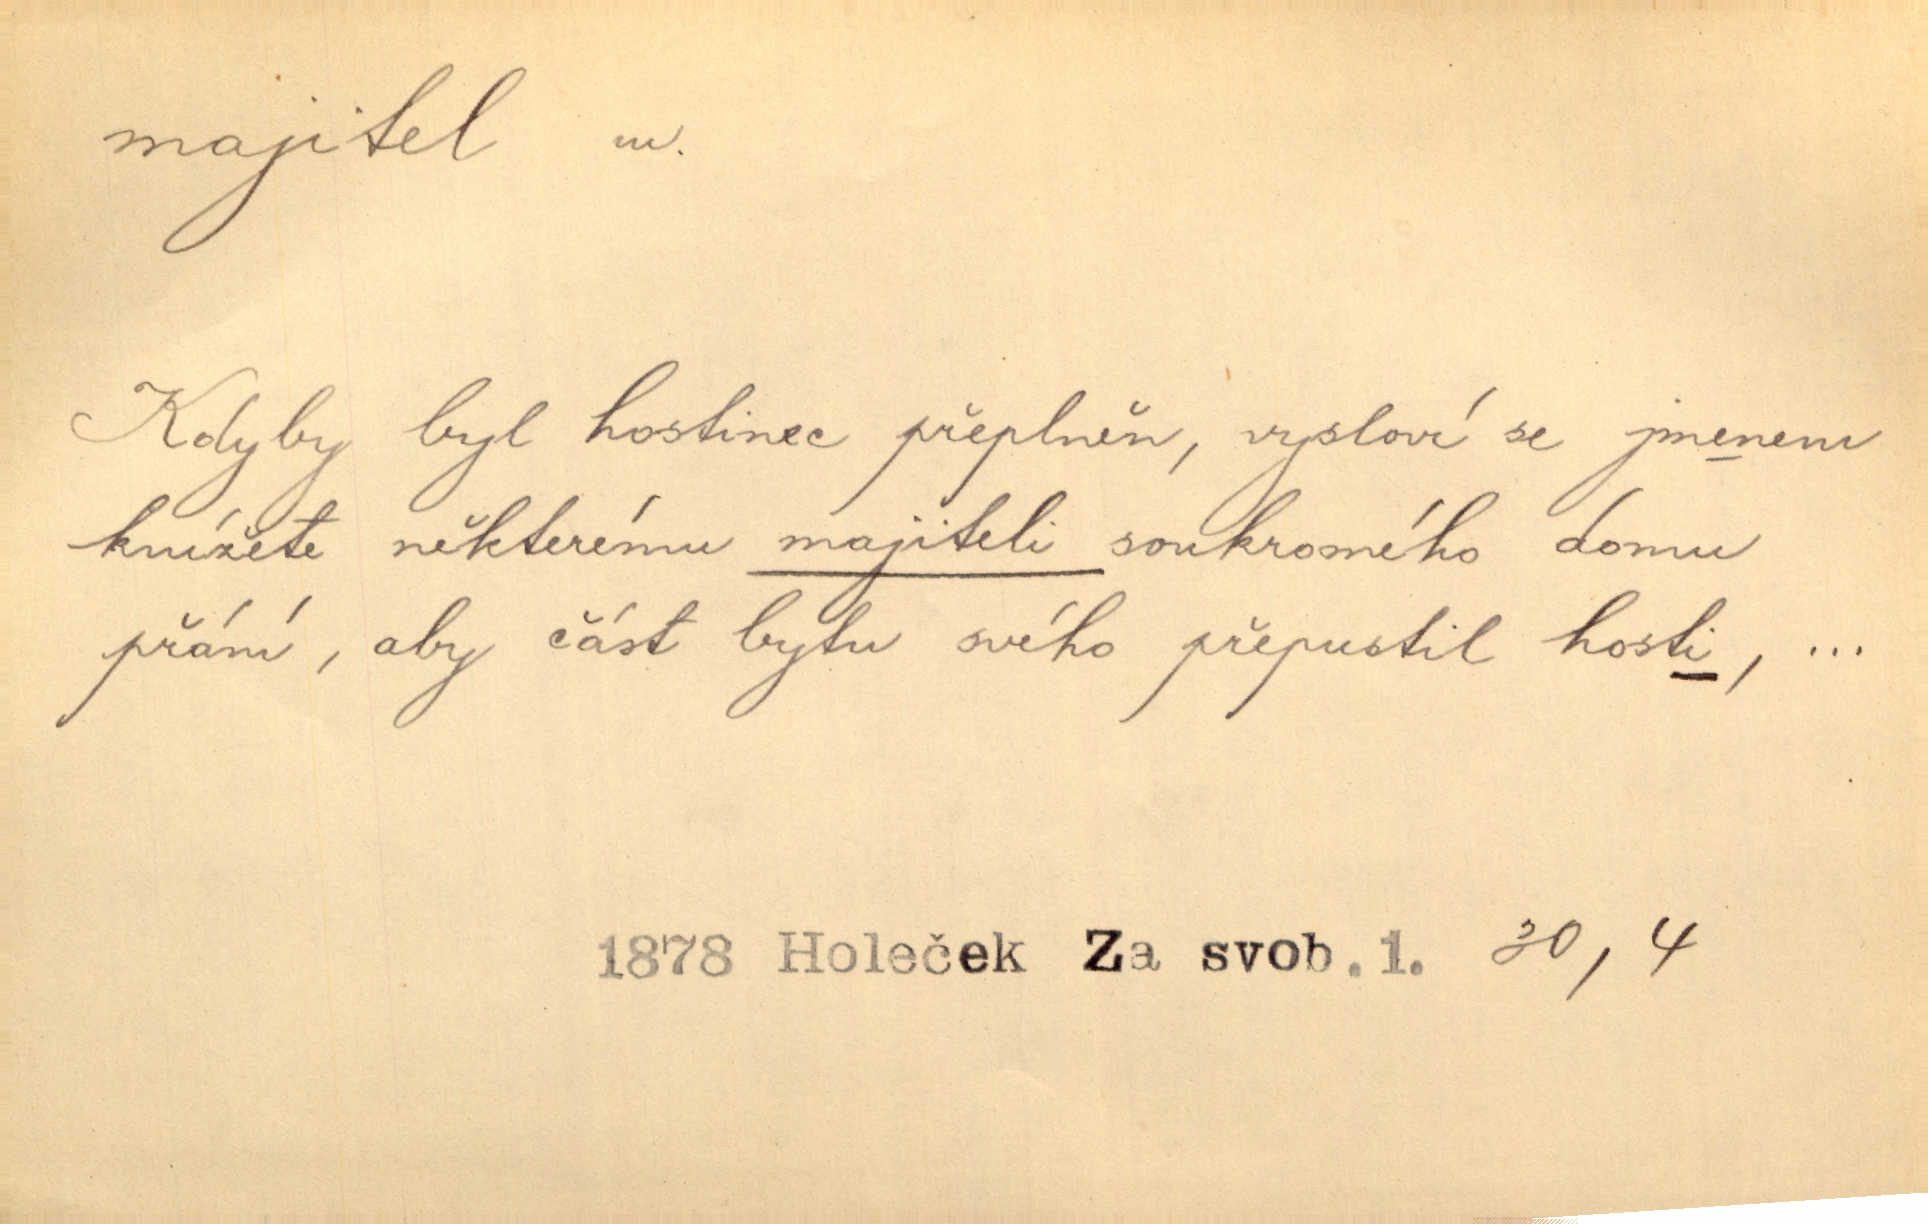 majitel m.
Kdyby byl hostinec přeplněn, vysloví se jmenem
knížete některému majiteli soukromého domu
přání, aby část bytu svého přepustil hosti, ...
1878 Holeček Za svob. 1. 30, 4